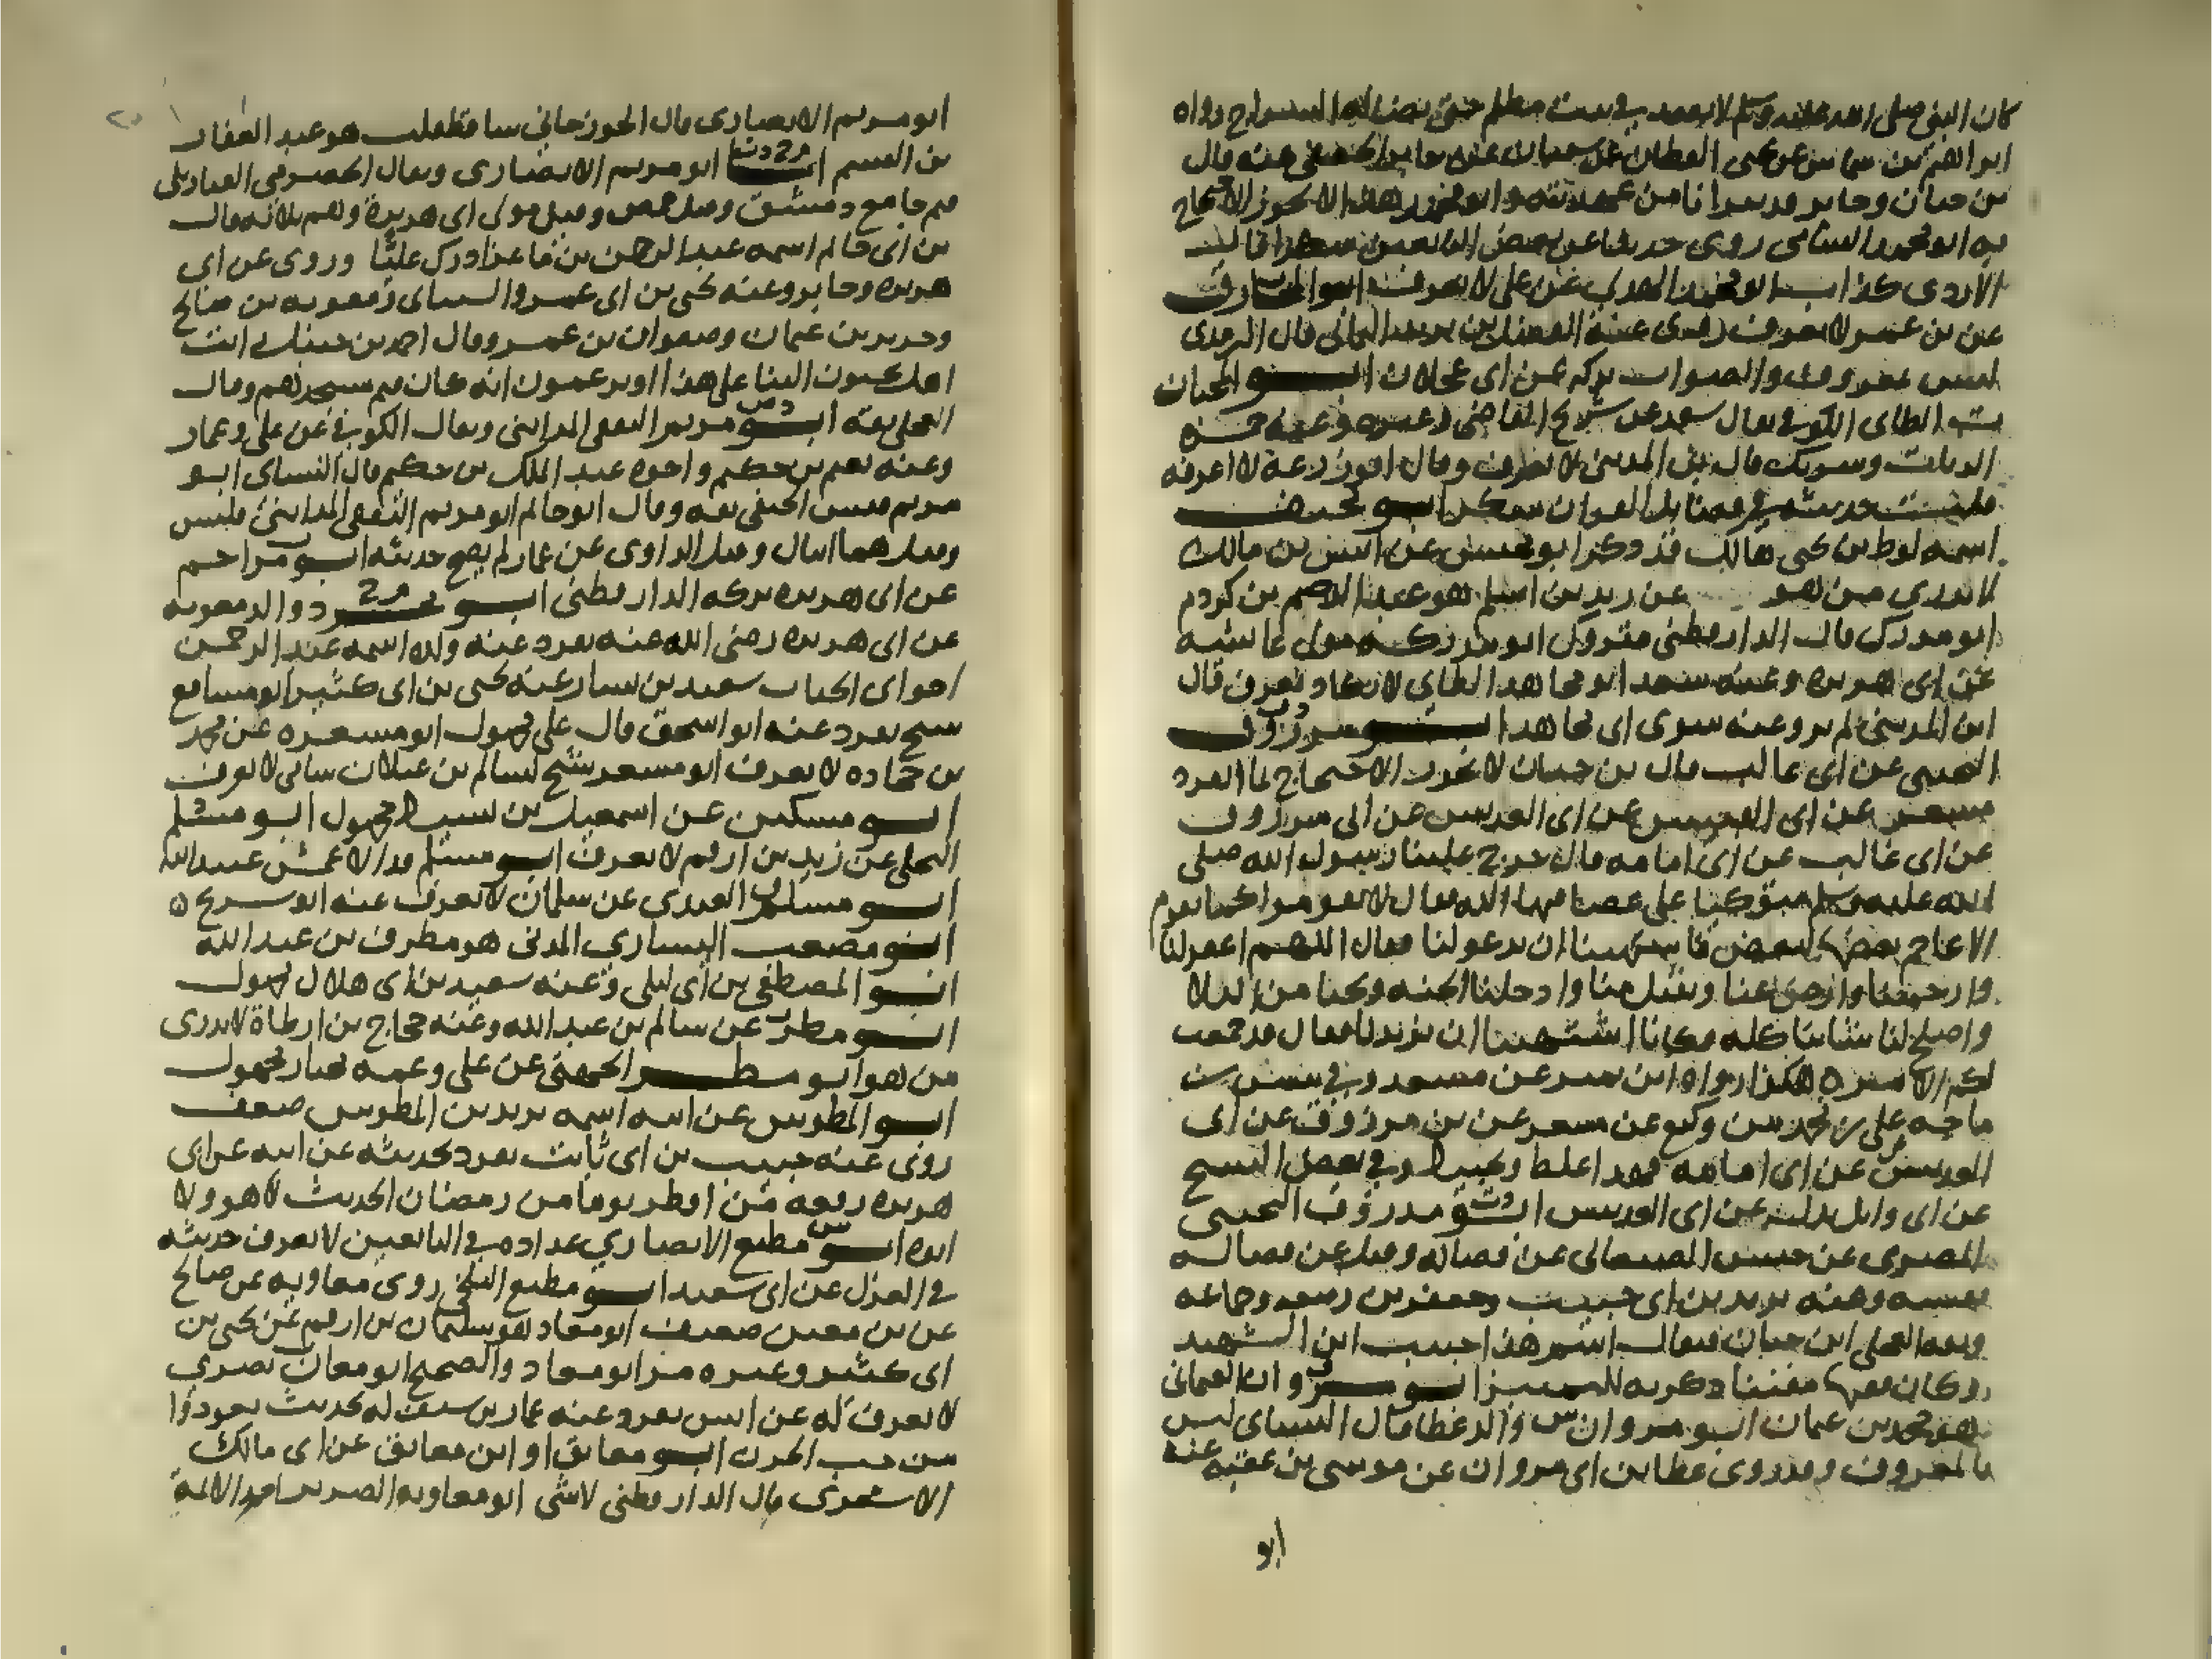 كان النبي صلى الله عليه وسلم لا يقعد في بيت مظلم حتى يضاء له السراج رواه
ابو الفتح بن عن يحيى القطان عن سفيان عن جابر الجعفي عنه قال
بن حبان وجابر قد تبرأنا من عهدته وابو محمد هذا لا يجوز الاحتجاج
به ابو محمد الشامي روى حديثا عن بعض التابعين منكرا قال
الازدي كذاب ابو محمد الهذلي عن علي لا يعرف ابو المخارق
عن بن عمر لا يعرف روى عنه الفضل بن يزيد الثمالي قال الترمذي
ليس بمعروف والصواب تركه عن ابي عجلان ابو المختار
الطاي الكوفي يقال سعد عن شريح القاضي وغيره وعنه حمزة
الزيات وشريك قال بن المديني لا يعرف وقال ابو زرعة لا اعرفه
قلت حديثه في فضائل القران منكر ابو مخنف
اسمه لوط بن يحيى هالك قد ذكر ابو مخيس عن انس بن مالك
لا ندري من هو عن زيد بن اسلم هو عبد الاصم بن كردم
ابو مدرك قال الدارقطني متروك ابو مدركة مولى عائشة
عن ابي هريرة وعنه سعد ابو مجاهد الطاي لا يكاد يعرف قال
ابن المديني لم يرو عنه سوى ابي مجاهد ابو مرزوق
التجيبي عن ابي غالب قال بن حبان لا يجوز الاحتجاج بما انفرد
مسعر عن ابي العنبس عن ابي العدبس عن ابي مرزوق
عن ابي غالب عن ابي امامه قال خرج علينا رسول الله صلى
الله عليه وسلم متوكئا على عصا فقمنا اليه فقال لا تقوموا كما يقوم
الاعاجم بعضها لبعض فاشتهينا ان يدعو لنا فقال اللهم اغفر لنا
وارحمنا وارض عنا وتقبل منا وادخلنا الجنه ونجنا من النار
واصلح لنا شاننا كله فكانا اشتهينا ان يزيدنا فقال قد جمعت
لكم الامر هكذا رواه ابن نمير عن مسعر وفي سنن بن
ماجه علي بن محمد بن وكيع عن مسعر عن بن مرزوق عن ابي
العدبس عن ابي امامه فهذا غلط وتخبيط وفي بعض النسخ
عن ابي وائل بدل عن ابي العدبس ابو مرزوق التجيبي
المصري عن حنش الصنعاني عن فضاله وقيل عن فضاله
نفسه وعنه يزيد بن ابي حبيب وجعفر بن ربيعه وجماعه
وثقه العجلي ابن حبان فقال اسم هذا حبيب ابن الشهيد
وكان فقيها مفتيا ذكرته للتمييز ابو مروان العثماني
هو محمد بن عثمان ابو مروان والد عطا قال النسائي ليس
بالمعروف وقد روى عطا بن ابي مروان عن موسى بن عقبة عنه
ابو
ابو مريم الانصاري قال الجوزجاني ساقط قلت هو عبد الغفار
بن القسم ابو مريم الانصاري ويقال الحضرمي
قيم جامع دمشق وقيل حمص وقيل مولى ابي هريرة وهم ثلاثه قال
بن ابي حاتم اسمه عبد الرحمن بن ماعز ادرك عليا وروى عن ابي
هريره وجابر وعنه يحيى بن ابي عمرو السيباني ومعويه بن صالح
وحريز بن عثمان وصفوان بن عمرو وقال احمد بن حنبل رايت
اهل حمص يحسنون الثنا عليه ويزعمون انه كان قيم مسجدهم وقال
العجلي ثقه ابو مريم الثقفي المدايني ويقال الكوفي عن علي وعمار
وعنه نعيم بن حكيم واخوه عبد الملك بن حكيم قال النسائي ابو
مريم قيس الحنفي ثقه وقال ابو حاتم ابو مريم الثقفي المدايني قيس
وقيل هما اثنان وقيل الراوي عن عمار لم يصح حديثه ابو مزاحم
عن ابي هريره تركه الدارقطني ابو مزرد والد معويه
عن ابي هريره رضي الله عنه تفرد عنه ولده اسمه عبد الرحمن
اخو ابي الحباب سعيد بن يسار عنه يحيى بن ابي كثير ابو مسافع
شيخ تفرد عنه ابو اسحق قال علي مجهول ابو مسعره عن محمد
بن جحاده لا يعرف ابو مسعر شيخ لسالم بن غيلان لا يعرف
ابو مسكين عن اسمعيل بن نسيط مجهول ابو مسلم
البجلي عن زيد بن ارقم لا يعرف ابو مسلم قائد الاعمش عبيد الله
ابو مسلم العبدي عن سلمان لا يعرف عنه ابو شريح
ابو مصعب اليساري المدني هو مطرف بن عبد الله
ابو المصطفى بن ابي ليلى وعنه سعيد بن ابي هلال مجهول
ابو مطر عن سالم بن عبد الله وعنه حجاج بن ارطاة لا يدرى
من هو ابو مطر الجهني عن علي وعنه مختار مجهول
ابو المطوس عن ابيه اسمه يزيد بن المطوس ضعف
روى عنه حبيب بن ابي ثابت تفرد بحديثه عن ابيه عن ابي
هريره رفعه من افطر يوما من رمضان الحديث لا هو ولا
ابوه ابو مطيع الانصاري عداده في التابعين لا يعرف حديثه
في العزل عن ابي سعيد ابو مطيع البلخي روى معاويه عن صالح
عن بن معين ضعيف ابو معاذ هو سليمان بن ارقم عن يحيى بن
ابي كثير وغيره مر ابو معاذ والصحيح ابو معان بصري
لا يعرف له عن انس تفرد عنه عمار بن سيف له حديث تعوذوا
من جب الحزن ابو معانق او ابن معانق عن ابي مالك
الاشعري قال الدارقطني لا شي ابو معاويه الضرير احد الائمة